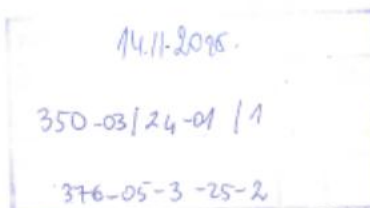 14.11.2025.
350-03/24-01/1
376-05-3-25-2